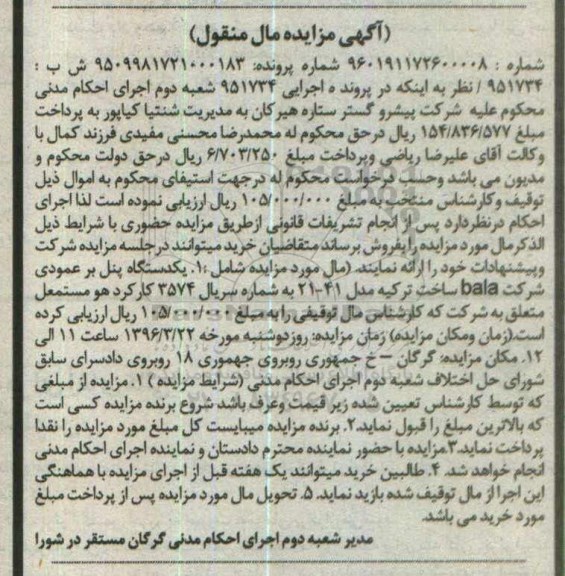 (آگهی مزایده مال منقول)
شماره : ۹۶۰۱۹۱۱۷۲۶۰۰۰۰۸ شماره پرونده: ۹۵۰۹۹۸۱۷۲۱۰۰۰۱۸۳ ش ب :
۹۵۱۷۳۴ / نظر به اینکه در پرونده اجرایی ۹۵۱۷۳۴ شعبه دوم اجرای احکام مدنی
محکوم علیه شرکت پیشرو گستر ستاره هیرکان به مدیریت شنتیا کیاپور به پرداخت
مبلغ ۱۵۴/۸۳۶/۵۷۷ ریال درحق محکوم له محمدرضا محسنی مفیدی فرزند کمال با
وکالت آقای علیرضا ریاضی وپرداخت مبلغ ۶/۷۰۳/۲۵۰ ریال درحق دولت محکوم و
مدیون می باشد وحسب درخواست محکوم له درجهت استیفای محکوم به اموال ذیل
توقیف وکارشناس منتخب به مبلغ ۱۰۵/۰۰۰/۰۰۰ ریال ارزیابی نموده است لذا اجرای
احکام درنظردارد پس از انجام تشریفات قانونی ازطریق مزایده حضوری با شرایط ذیل
الذکرمال مورد مزایده رابفروش برساند متقاضیان خرید میتوانند درجلسه مزایده شرکت
وپیشنهادات خود را ارائه نمایند. (مال مورد مزایده شامل :۱. یکدستگاه پنل بر عمودی
شرکت bala ساخت ترکیه مدل ۴۱-۲۱ به شماره سریال ۳۵۷۴ کارکرد هو مستعمل
متعلق به شرکت که کارشناس مال توقیفی رابه مبلغ ۱۰۵/۰۰۰/۰۰۰ ریال ارزیابی کرده
است.(زمان ومکان مزایده) زمان مزایده: روزدوشنبه مورخه ۱۳۹۶/۳/۲۲ ساعت ۱۱ الی
۱۲. مکان مزایده: گرگان –خ جمهوری روبروی جهموری ۱۸ روبروی دادسرای سابق
شورای حل اختلاف شعبه دوم اجرای احکام مدنی (شرایط مزایده ) ۱. مزایده از مبلغی
که توسط کارشناس تعیین شده زیر قیمت وعرف باشد شروع برنده مزایده کسی است
که بالاترین مبلغ را قبول نماید.۲. برنده مزایده میبایست کل مبلغ مورد مزایده را نقدا
پرداخت نماید.۳.مزایده با حضور نماینده محترم دادستان و نماینده اجرای احکام مدنی
انجام خواهد شد. ۴. طالبین خرید میتوانند یک هفته قبل از اجرای مزایده با هماهنگی
این اجرا از مال توقیف شده بازید نماید. ۵. تحویل مال مورد مزایده پس از پرداخت مبلغ
مورد خرید می باشد.
مدیر شعبه دوم اجرای احکام مدنی گرگان مستقر در شورا